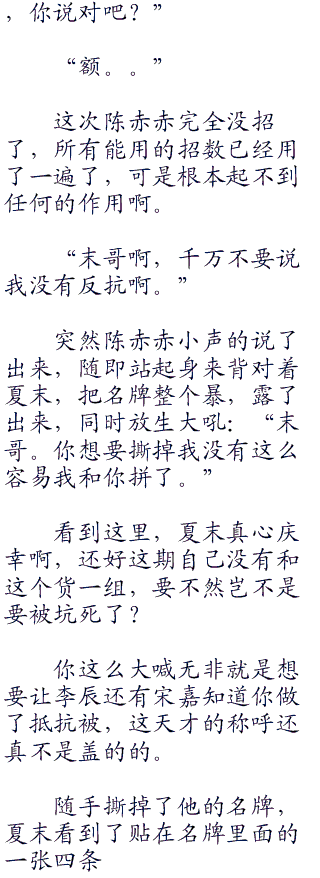 ，你说对吧？”
“额。。”
这次陈赤赤完全没招
了，所有能用的招数已经用
了一遍了，可是根本起不到
任何的作用啊。
“末哥啊，千万不要说
我没有反抗啊。”
突然陈赤赤小声的说了
出来，随即站起身来背对着
夏末，把名牌整个暴，露了
出来，同时放生大吼：“末
哥。你想要撕掉我没有这么
容易我和你拼了。”
看到这里，夏末真心庆
幸啊，还好这期自己没有和
这个货一组，要不然岂不是
要被坑死了？
你这么大喊无非就是想
要让李辰还有宋嘉知道你做
了抵抗被，这天才的称呼还
真不是盖的的。
随手撕掉了他的名牌，
夏末看到了贴在名牌里面的
一张四条